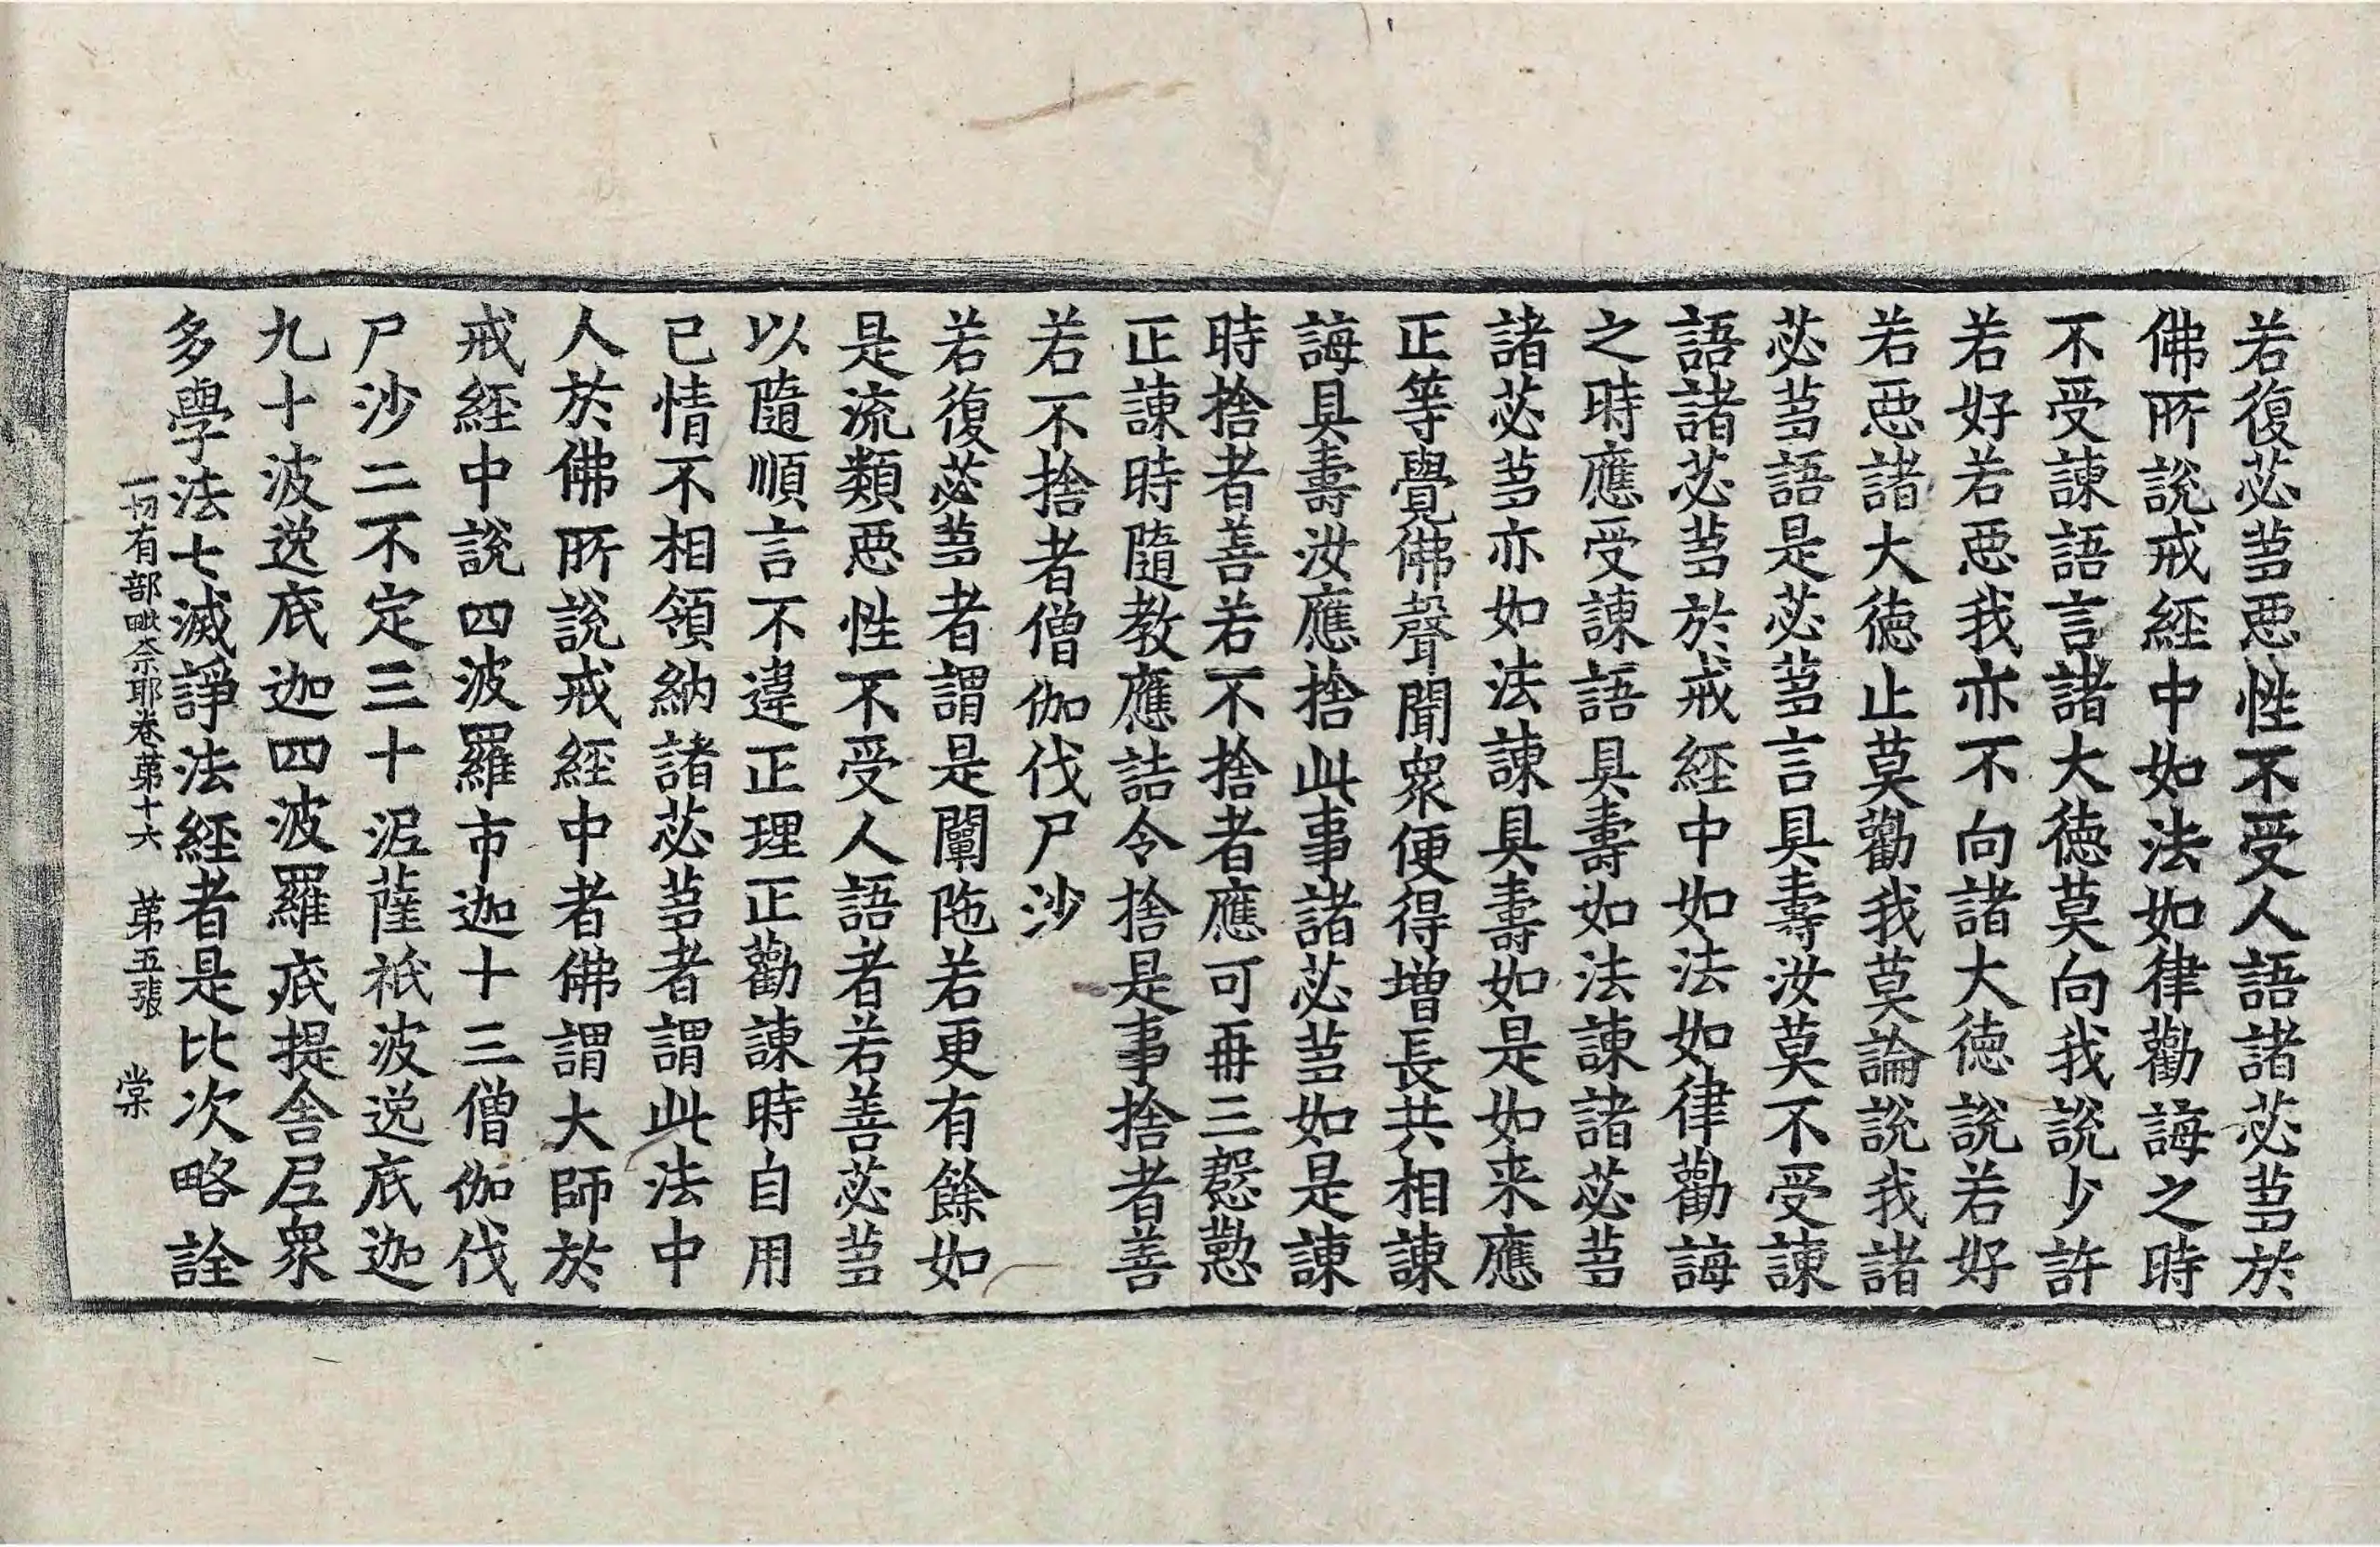 若復苾芻惡性不受人語諸苾芻於
佛所說戒經中如法如律勸誨之時
不受諫語言諸大德莫向我說少許
若好若惡我亦不向諸大德說若好
若惡諸大德止莫勸我莫論說我諸
苾芻語是苾芻言具壽汝莫不受諫
語諸苾芻於戒經中如法如律勸誨
之時應受諫語具壽如法諫諸苾芻
諸苾芻亦如法諫具壽如是如来應
正等覺佛聲聞衆便得增長共相諫
誨具壽汝應捨此事諸苾芻如是諫
時捨者善若不捨者應可再三慇懃
正諫時隨教應詰令捨是事捨者善
若不捨者僧伽伐尸沙
若復苾芻者謂是闡陁若更有餘如
是流類惡性不受人語者若善苾芻
以隨順言不違正理正勸諫時自用
已情不相領納諸苾芻者謂此法中
人於佛所說戒經中者佛謂大師於
戒經中說四波羅市迦十三僧伽伐
尸沙二不定三十泥薩祇波逸底迦
九十波逸底迦四波羅底提舍尼衆
多學法七滅諍法經者是比次略詮
一切有部毗奈耶卷苐十六 苐五張 棠